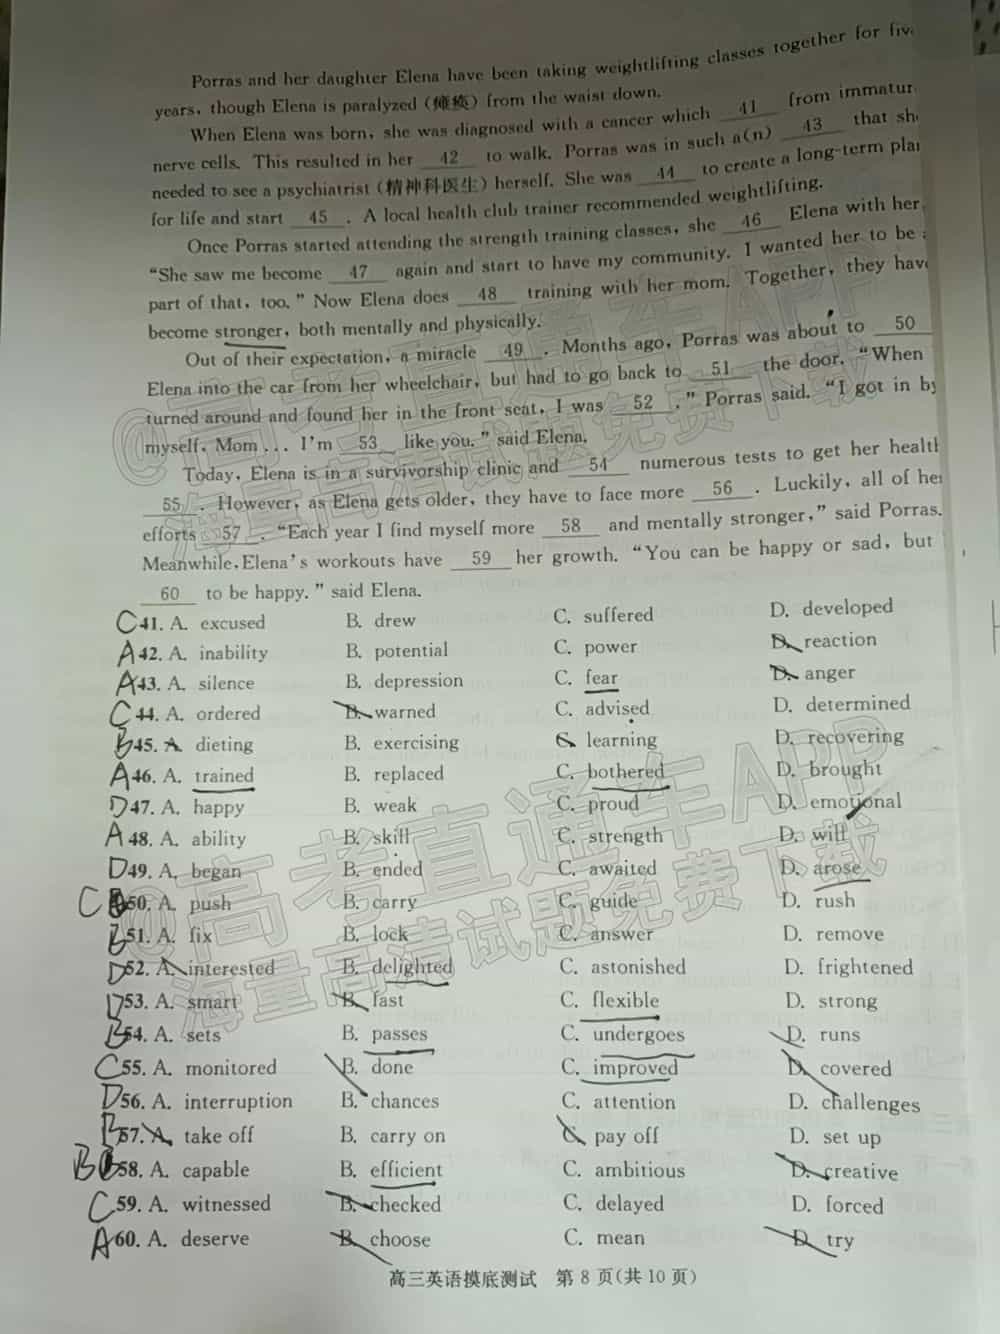 Porras and her daughter Elena have been taking weightlifting classes together for
years, though Elena is paralyzed (瘫痪) from the waist down.
When Elena was born, she was diagnosed with a cancer which 41 from immatur
nerve cells. This resulted in her 42 to walk. Porras was in such a(n) 43 that sh
needed to see a psychiatrist (精神科医生) herself. She was 44 to create a long-term pla
for life and start 45 . A local health club trainer recommended weightlifting.
Once Porras started attending the strength training classes, she 46 Elena with her.
“She saw me become 47 again and start to have my community. I wanted her to be a
part of that, too.” Now Elena does 48 training with her mom. Together, they hav
become stronger, both mentally and physically.
Out of their expectation, a miracle 49 . Months ago, Porras was about to 50
Elena into the car from her wheelchair, but had to go back to 51 the door. “When I
turned around and found her in the front seat, I was 52 .” Porras said. “I got in by
myself, Mom ... I'm 53 like you.” said Elena.
Today, Elena is in a survivorship clinic and 54 numerous tests to get her health
55 . However, as Elena gets older, they have to face more 56 . Luckily, all of her
efforts 57 . “Each year I find myself more 58 and mentally stronger,” said Porras.
Meanwhile, Elena's workouts have 59 her growth. “You can be happy or sad, but
60 to be happy.” said Elena.
C 41. A. excused B. drew C. suffered D. developed
A 42. A. inability B. potential C. power D. reaction
A 43. A. silence B. depression C. fear D. anger
C 44. A. ordered B. warned C. advised D. determined
B 45. A. dieting B. exercising C. learning D. recovering
A 46. A. trained B. replaced C. bothered D. brought
D 47. A. happy B. weak C. proud D. emotional
A 48. A. ability B. skill C. strength D. will
D 49. A. began B. ended C. awaited D. arose
C 50. A. push B. carry C. guide D. rush
B 51. A. fix B. lock C. answer D. remove
D 52. A. interested B. delighted C. astonished D. frightened
D 53. A. smart B. fast C. flexible D. strong
B 54. A. sets B. passes C. undergoes D. runs
C 55. A. monitored B. done C. improved D. covered
D 56. A. interruption B. chances C. attention D. challenges
B 57. A. take off B. carry on C. pay off D. set up
B 58. A. capable B. efficient C. ambitious D. creative
C 59. A. witnessed B. checked C. delayed D. forced
A 60. A. deserve B. choose C. mean D. try
高三英语摸底测试 第 8 页(共 10 页)
@高考直通车APP
海量高清试题免费下载
@高考直通车APP
海量高清试题免费下载